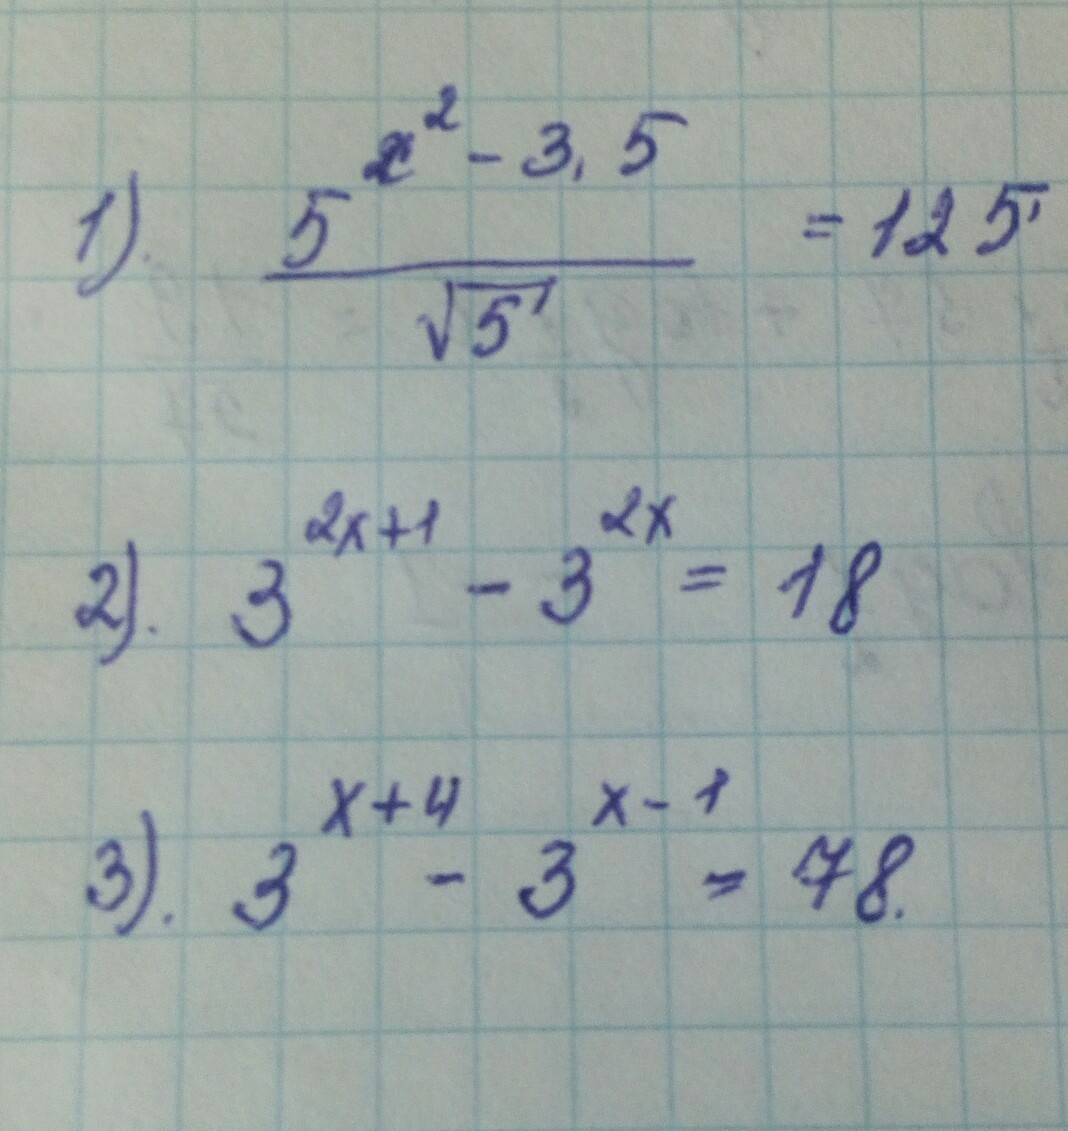 1). 5^{x^2 - 3,5} / √5 = 125
2). 3^{2x+1} - 3^{2x} = 18
3). 3^{x+4} - 3^{x-1} = 78.